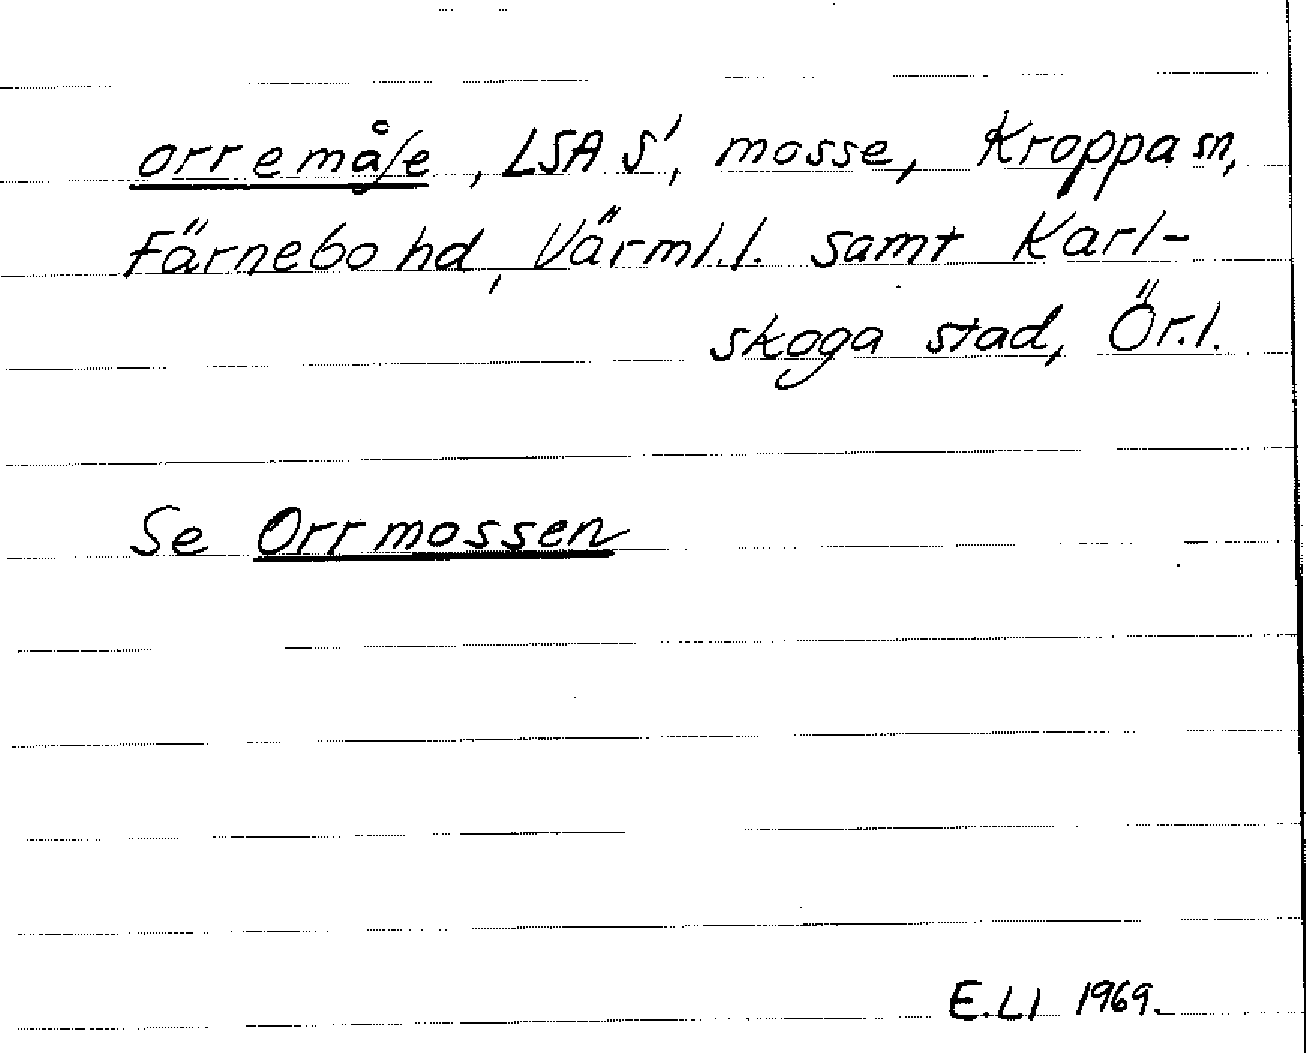 orremåse, LSA S', mosse, Kroppa sn,
Färnebo hd, Värml.l. samt Karl-
skoga stad, Ör.l.
Se Orrmossen
E.Ll 1969.